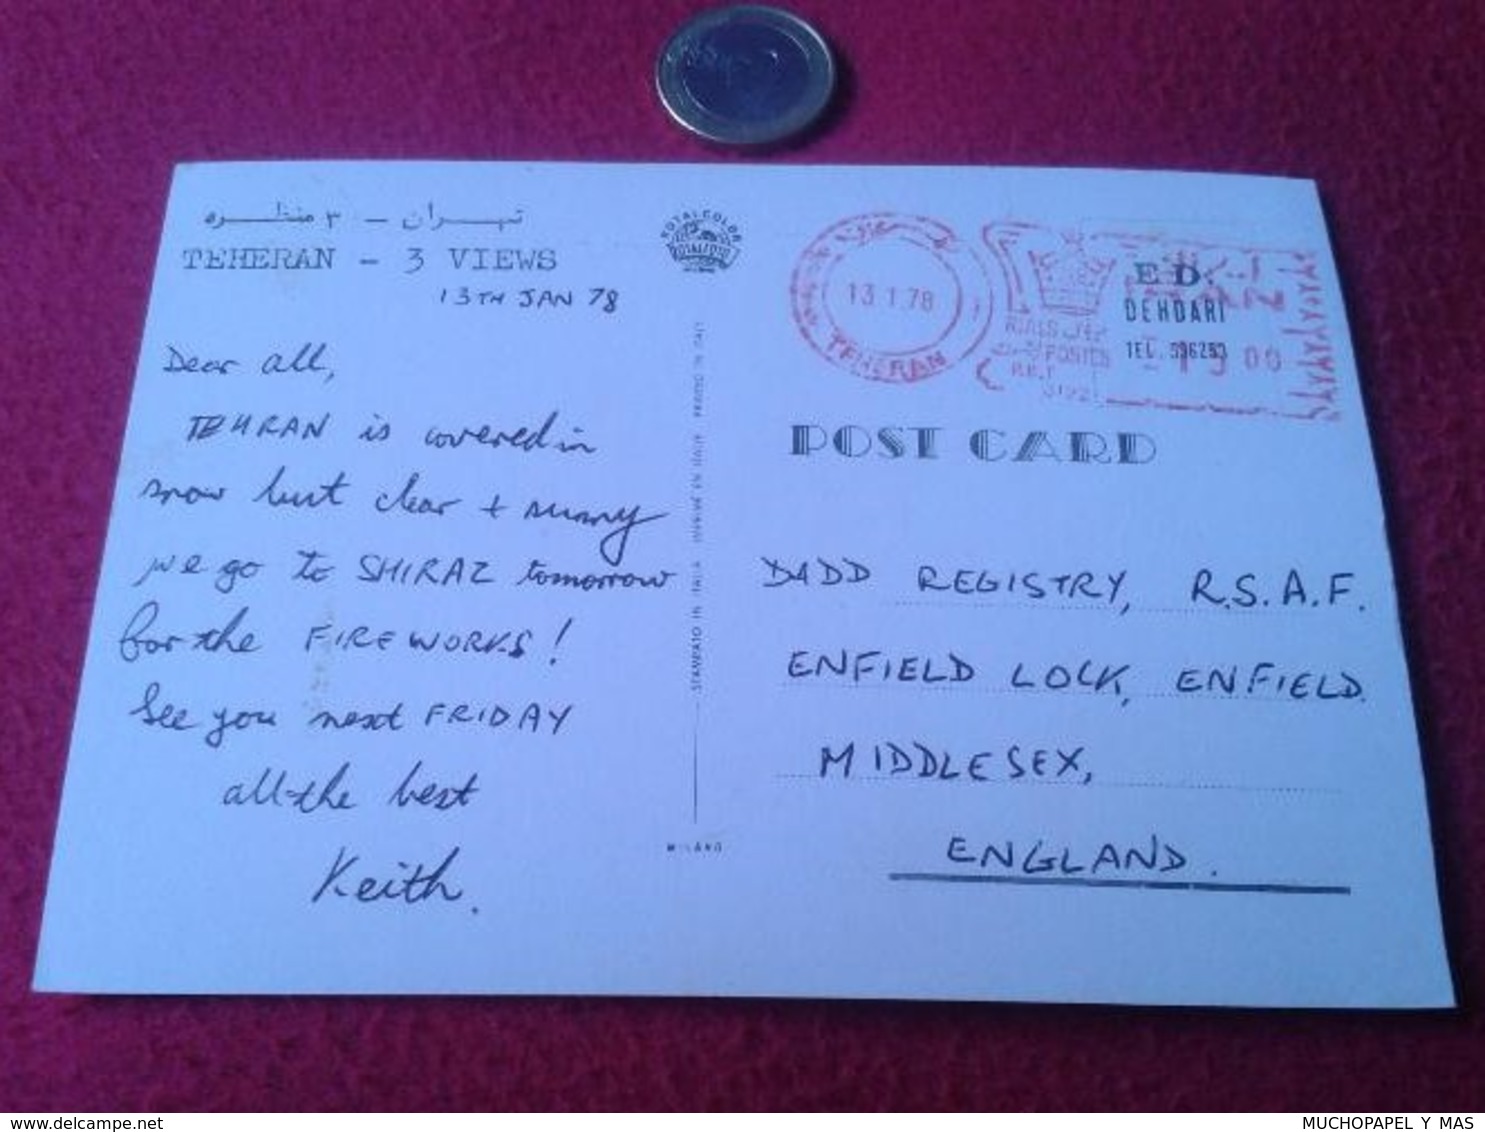 تهران - ۳ منظره
TEHERAN - 3 VIEWS
13TH JAN 78
Dear all,
TEHRAN is covered in
snow but clear + sunny
we go to SHIRAZ tomorrow
for the FIREWORKS!
See you next FRIDAY
all the best
Keith.
ROTALCOLOR
ROTALFOTO
STAMPATO IN ITALIA
MILANO
13.1.78
TEHERAN
RIALS
POSTES
E.D.
DEHDARI
POST CARD
DADD REGISTRY, R.S.A.F.
ENFIELD LOCK, ENFIELD.
MIDDLESEX,
ENGLAND.
delcampe.net
MUCHOPAPEL Y MAS